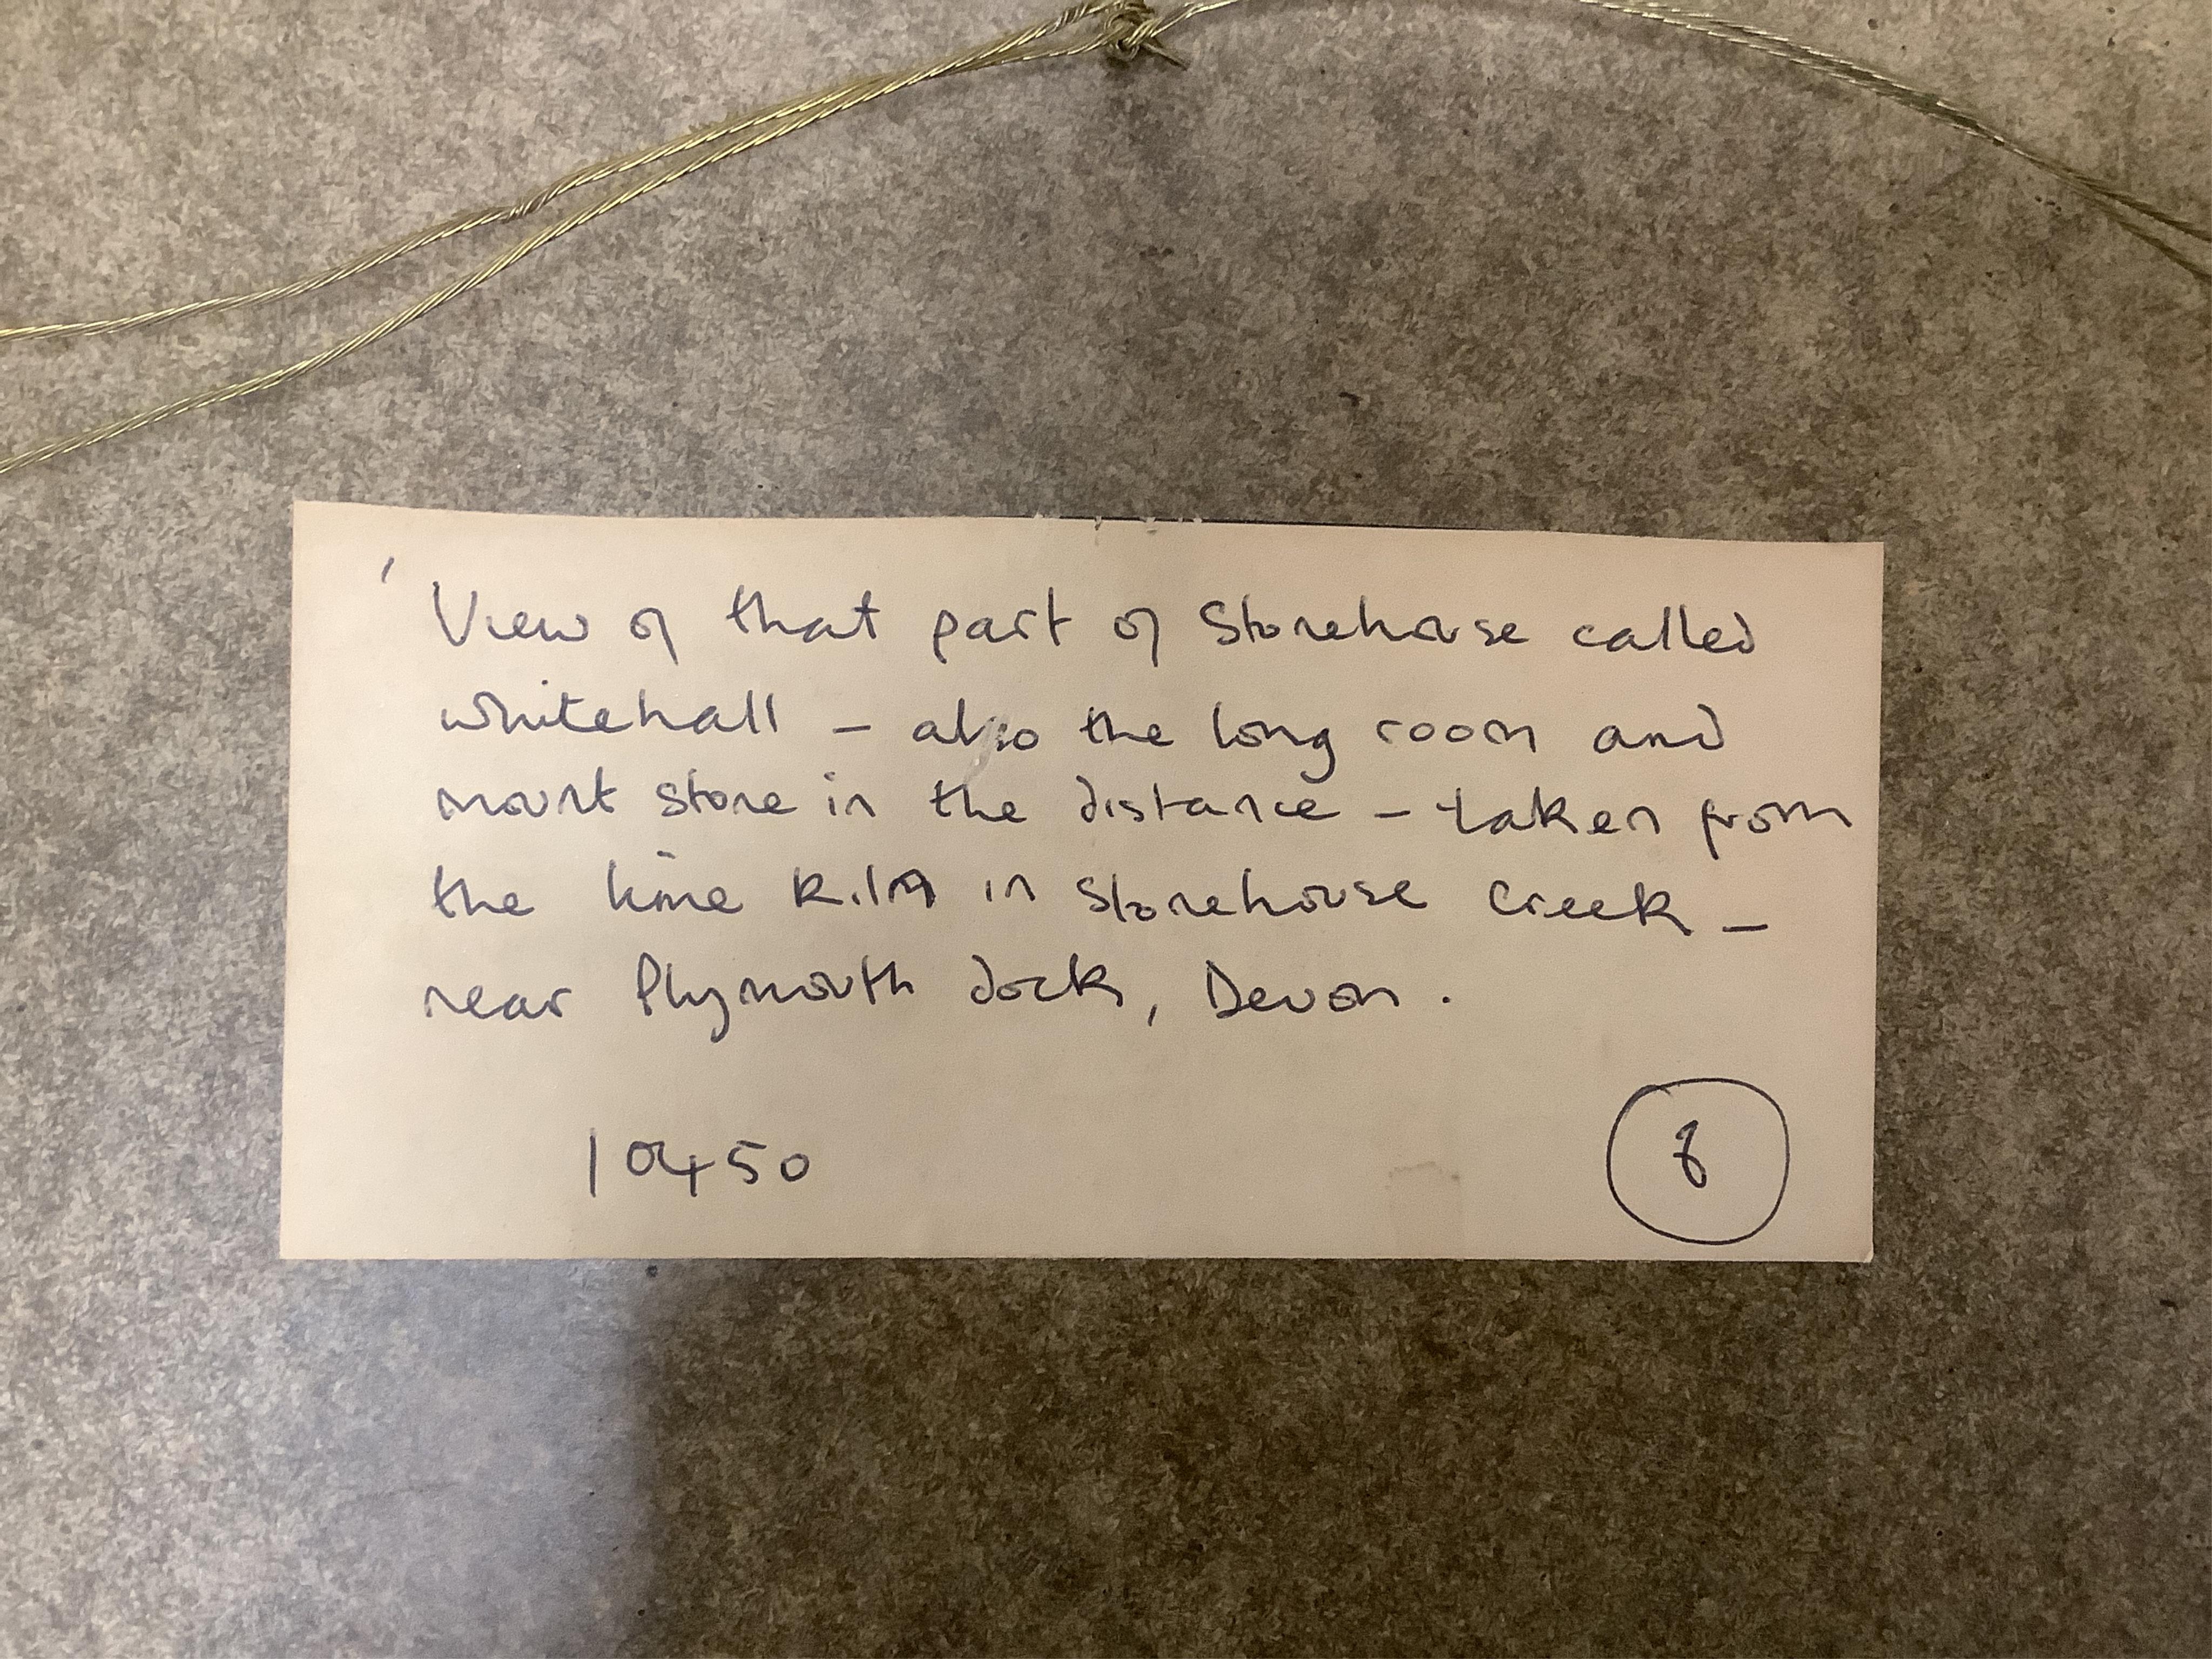 ' View of that part of Stonehouse called
whitehall – also the long room and
mount stone in the distance – taken from
the lime kiln in stonehouse creek –
near Plymouth dock, Devon.
10450
8